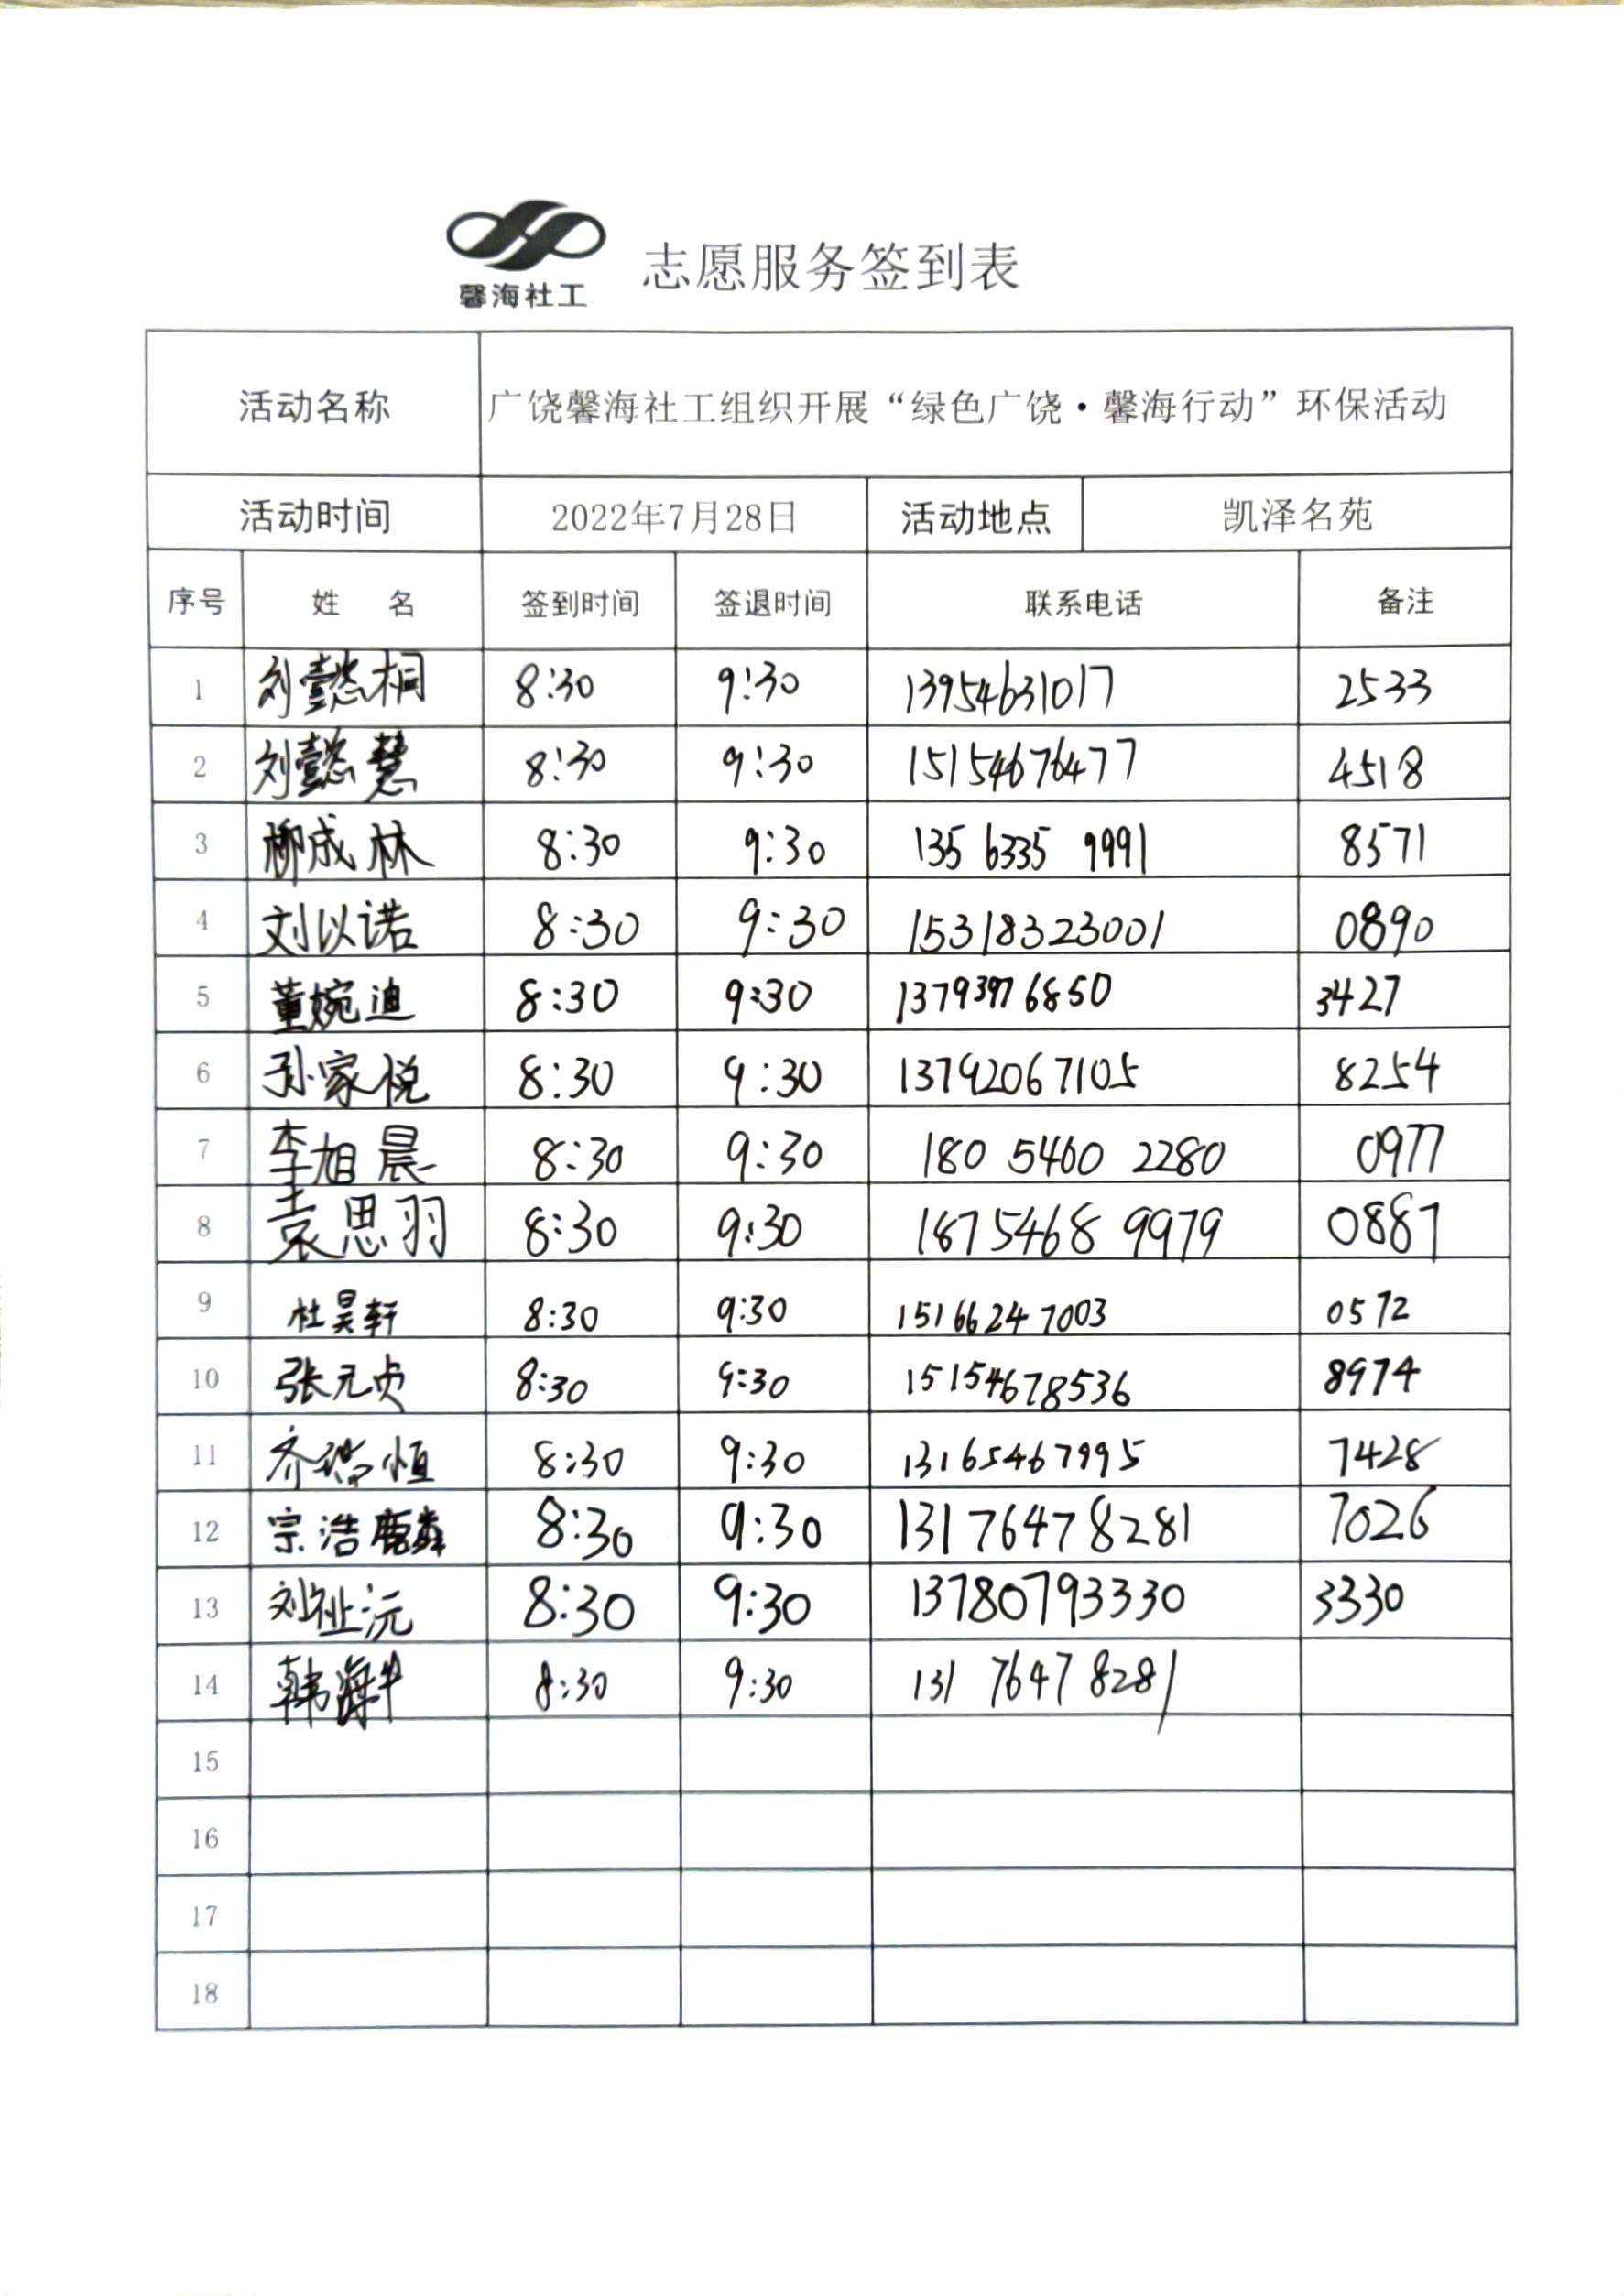 馨海社工
志愿服务签到表
活动名称 广饶馨海社工组织开展“绿色广饶·馨海行动”环保活动
活动时间 2022年7月28日 活动地点 凯泽名苑
序号 姓 名 签到时间 签退时间 联系电话 备注
1 刘懿桐 8:30 9:30 13954631017 2533
2 刘懿慧 8:30 9:30 15154676477 4518
3 柳成林 8:30 9:30 135 6335 9991 8571
4 刘以诺 8:30 9:30 15318323001 0890
5 董婉迪 8:30 9:30 13793976850 3427
6 孙家悦 8:30 9:30 13792067105 8254
7 李旭晨 8:30 9:30 180 5460 2280 0977
8 袁思羽 8:30 9:30 1875468 9979 0887
9 杜昊轩 8:30 9:30 15166247003 0572
10 张元贞 8:30 9:30 15154678536 8974
11 齐瑞恒 8:30 9:30 13165467995 7428
12 宗浩麟 8:30 9:30 13176478281 7026
13 刘祉沅 8:30 9:30 13780793330 3330
14 韩 8:30 9:30 131 7647 8281
15
16
17
18